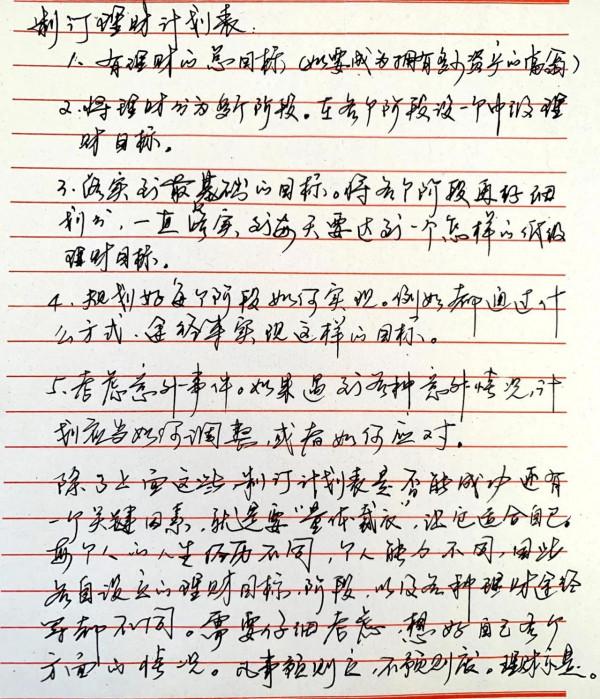 制订理财计划表：
1. 有理财的总目标（如要成为拥有多少资产的富翁）
2. 将理财分为多个阶段。在各个阶段设一个中级理
财目标。
3. 落实到最基础的目标。将各个阶段再仔细
划分，一直落实到每天要达到一个怎样的低级
理财目标。
4. 规划好每个阶段如何实现。例如都通过什
么方式、途径来实现这样的目标。
5. 考虑意外事件。如果遇到各种意外情况，计
划应当如何调整，或者如何应对。
除了上面这些，制订计划表是否能成功还有
一个关键因素，就是要“量体裁衣”，让它适合自己。
每个人的人生经历不同，个人能力不同，因此
各自设立的理财目标、阶段，以及各种理财途径
等都不同。需要仔细考虑，想好自己各个
方面的情况。凡事预则立，不预则废。理财亦是。